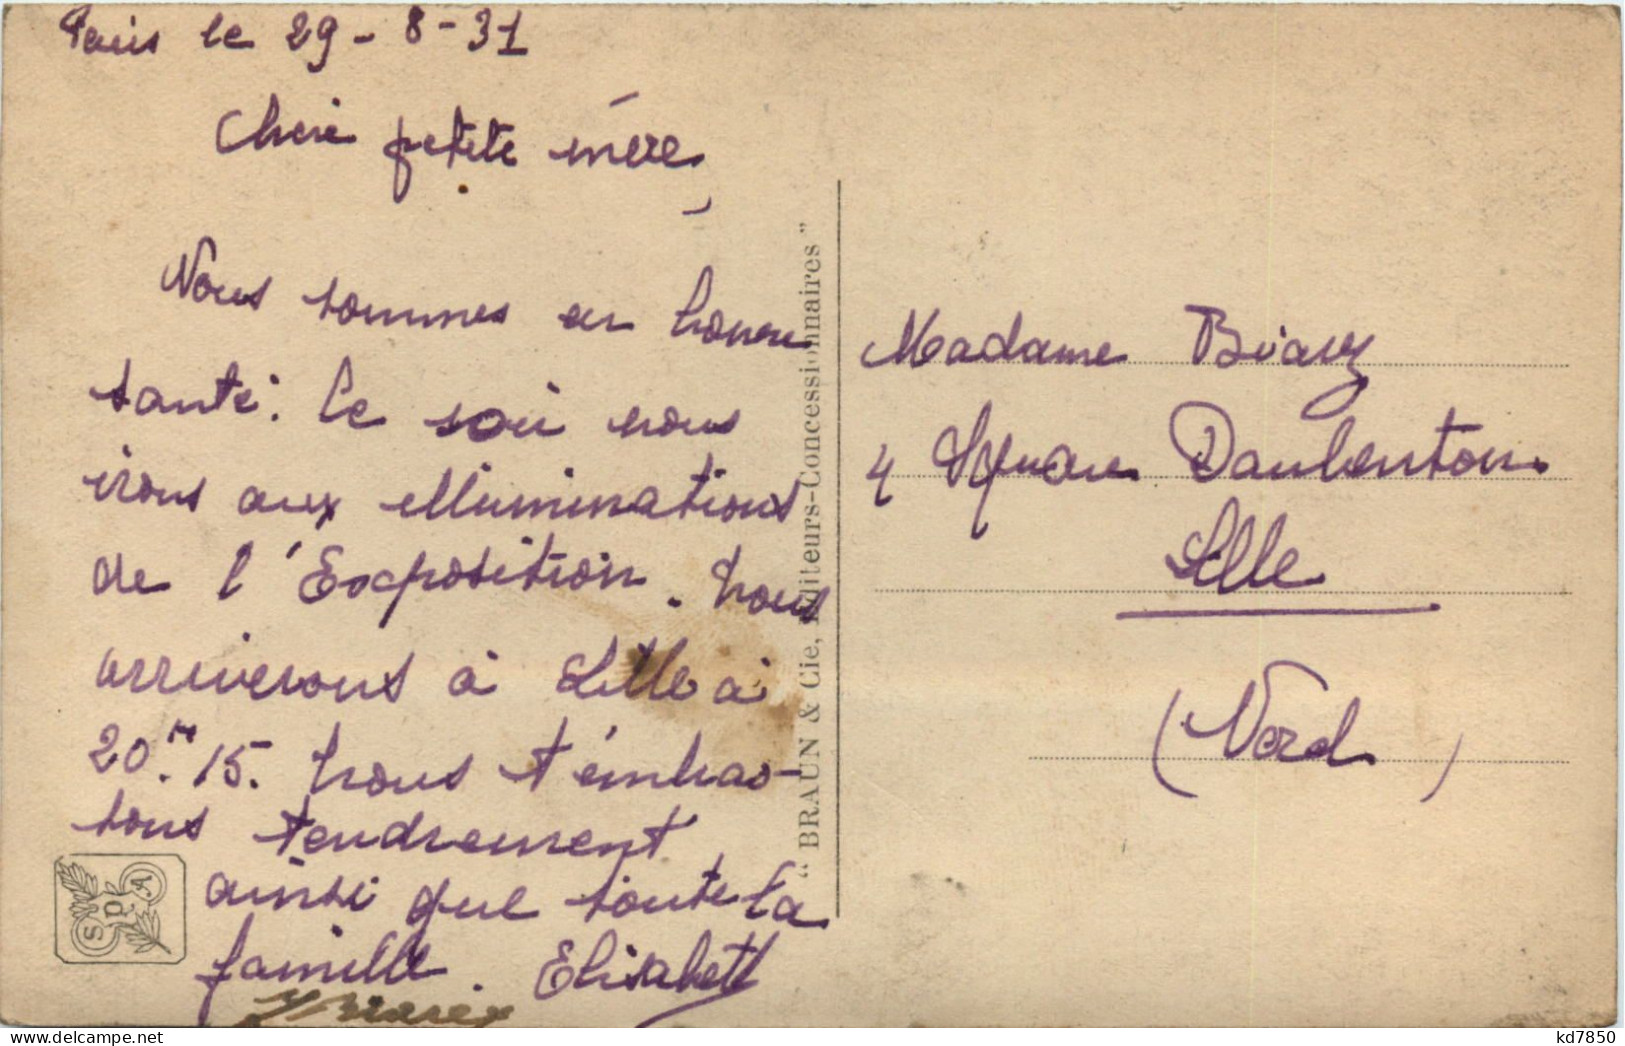 Paris le 29-8-31
Chère petite mère,
Nous sommes en bonne
santé. Ce soir nous
irons aux illuminations
de l'Exposition. Nous
arriverons à Lille à
20H.15. Nous t'embras-
sons tendrement
ainsi que toute la
famille. Elisabeth
"BRAUN & Cie, Editeurs-Concessionnaires"
SPA
Madame
4 Square Daubenton
Lille
(Nord)
kd7850